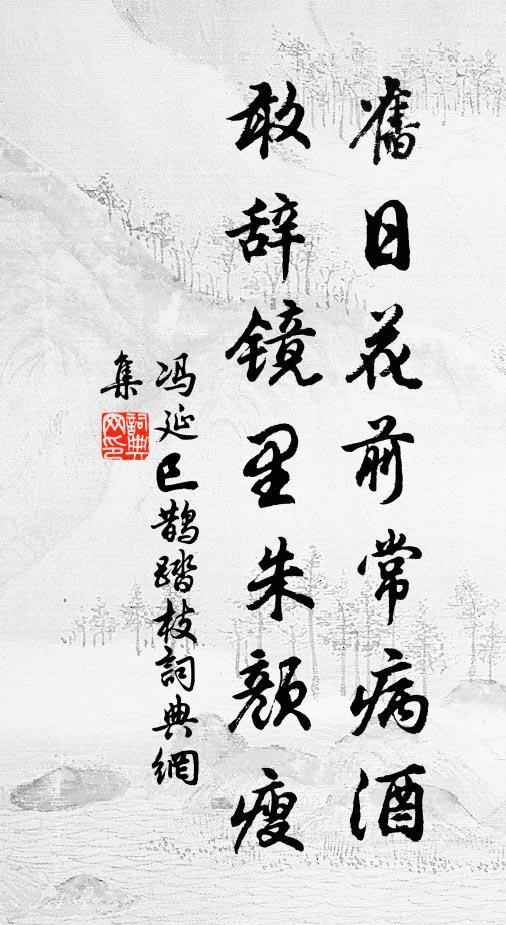 舊日花前常病酒
敢辞镜里朱颜瘦
冯延巳鹊踏枝詞典網
集
詞典网印